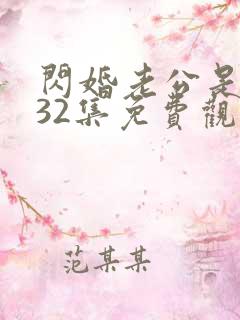 閃婚老公是
32集免費觀
范某某